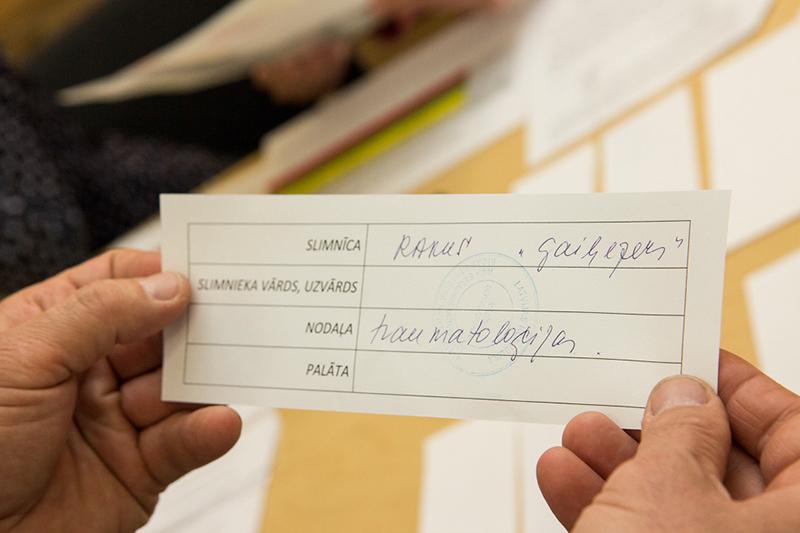 SLIMNĪCA RAKUS "Gaiļezers"
SLIMNIEKA VĀRDS, UZVĀRDS
NODAĻA traumatoloģijas.
PALĀTA